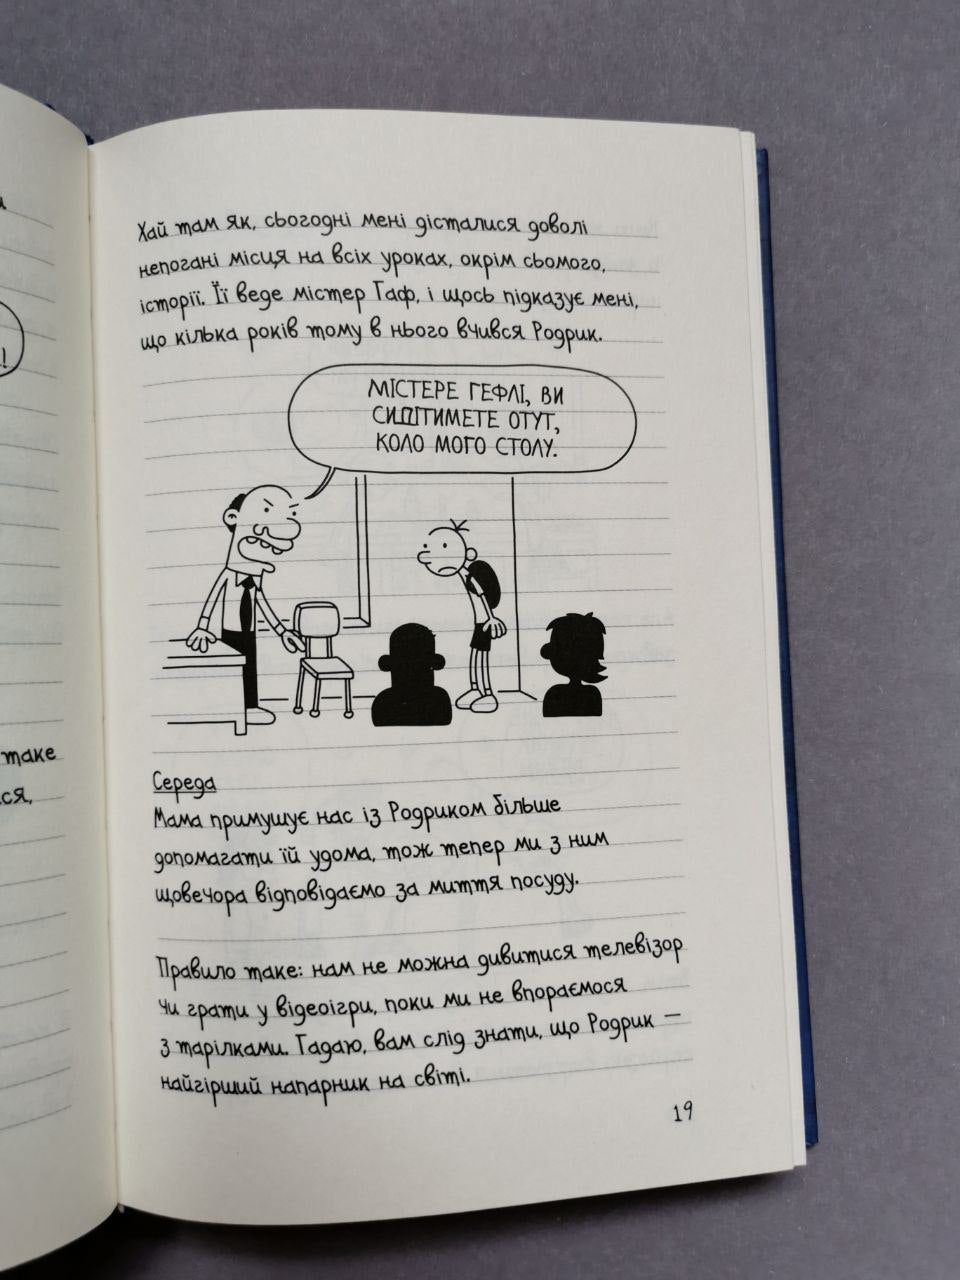 таке
ся,
Хай там як, сьогодні мені дісталися доволі
непогані місця на всіх уроках, окрім сьомого,
історії. Її веде містер Гаф, і щось підказує мені,
що кілька років тому в нього вчився Родрик.
МІСТЕРЕ ГЕФЛІ, ВИ
СИДІТИМЕТЕ ОТУТ,
КОЛО МОГО СТОЛУ.
Середа
Мама примушує нас із Родриком більше
допомагати їй удома, тож тепер ми з ним
щовечора відповідаємо за миття посуду.
Правило таке: нам не можна дивитися телевізор
чи грати у відеоігри, поки ми не впораємося
з тарілками. Гадаю, вам слід знати, що Родрик —
найгірший напарник на світі.
19